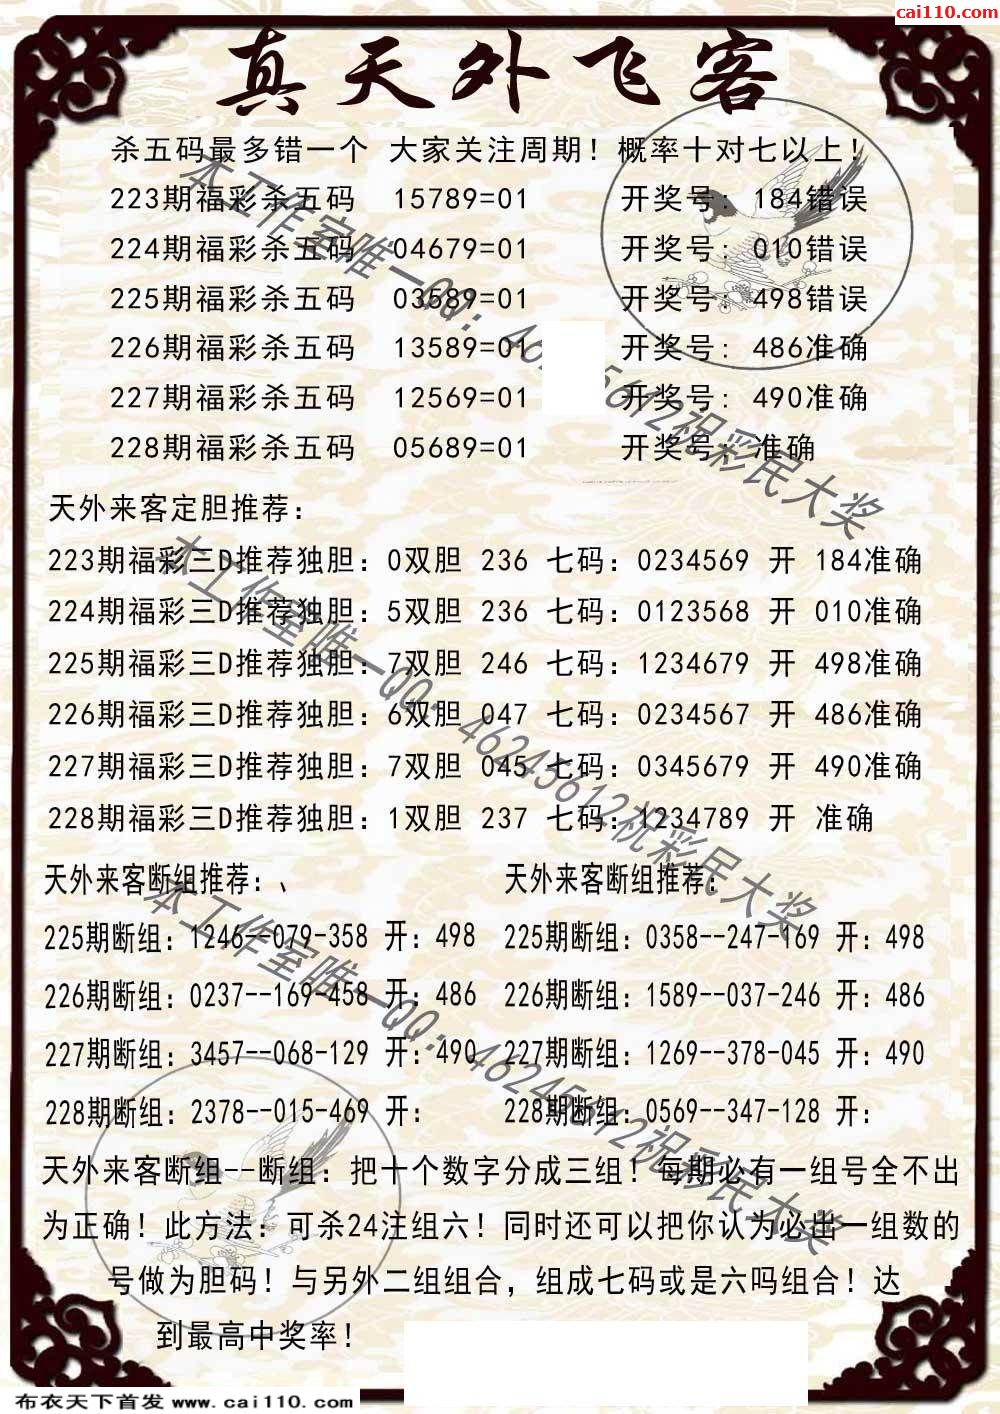 cai110.com
真天外飞客
杀五码最多错一个 大家关注周期！概率十对七以上！
223期福彩杀五码 15789=01 开奖号：184错误
224期福彩杀五码 04679=01 开奖号：010错误
225期福彩杀五码 03589=01 开奖号：498错误
226期福彩杀五码 13589=01 开奖号：486准确
227期福彩杀五码 12569=01 开奖号：490准确
228期福彩杀五码 05689=01 开奖号：准确
天外来客定胆推荐：
223期福彩三D推荐独胆：0双胆 236 七码：0234569 开 184准确
224期福彩三D推荐独胆：5双胆 236 七码：0123568 开 010准确
225期福彩三D推荐独胆：7双胆 246 七码：1234679 开 498准确
226期福彩三D推荐独胆：6双胆 047 七码：0234567 开 486准确
227期福彩三D推荐独胆：7双胆 045 七码：0345679 开 490准确
228期福彩三D推荐独胆：1双胆 237 七码：1234789 开 准确
天外来客断组推荐：、 天外来客断组推荐：
225期断组：1246--079-358 开：498 225期断组：0358--247-169 开：498
226期断组：0237--169-458 开：486 226期断组：1589--037-246 开：486
227期断组：3457--068-129 开：490 227期断组：1269--378-045 开：490
228期断组：2378--015-469 开： 228期断组：0569--347-128 开：
天外来客断组--断组：把十个数字分成三组！每期必有一组号全不出
为正确！此方法：可杀24注组六！同时还可以把你认为必出一组数的
号做为胆码！与另外二组组合，组成七码或是六吗组合！达
到最高中奖率！
本工作室唯一QQ：46245612祝彩民大奖
本工作室唯一QQ：46245612祝彩民大奖
本工作室唯一QQ：46245612祝彩民大奖
布衣天下首发 www.cai110.com